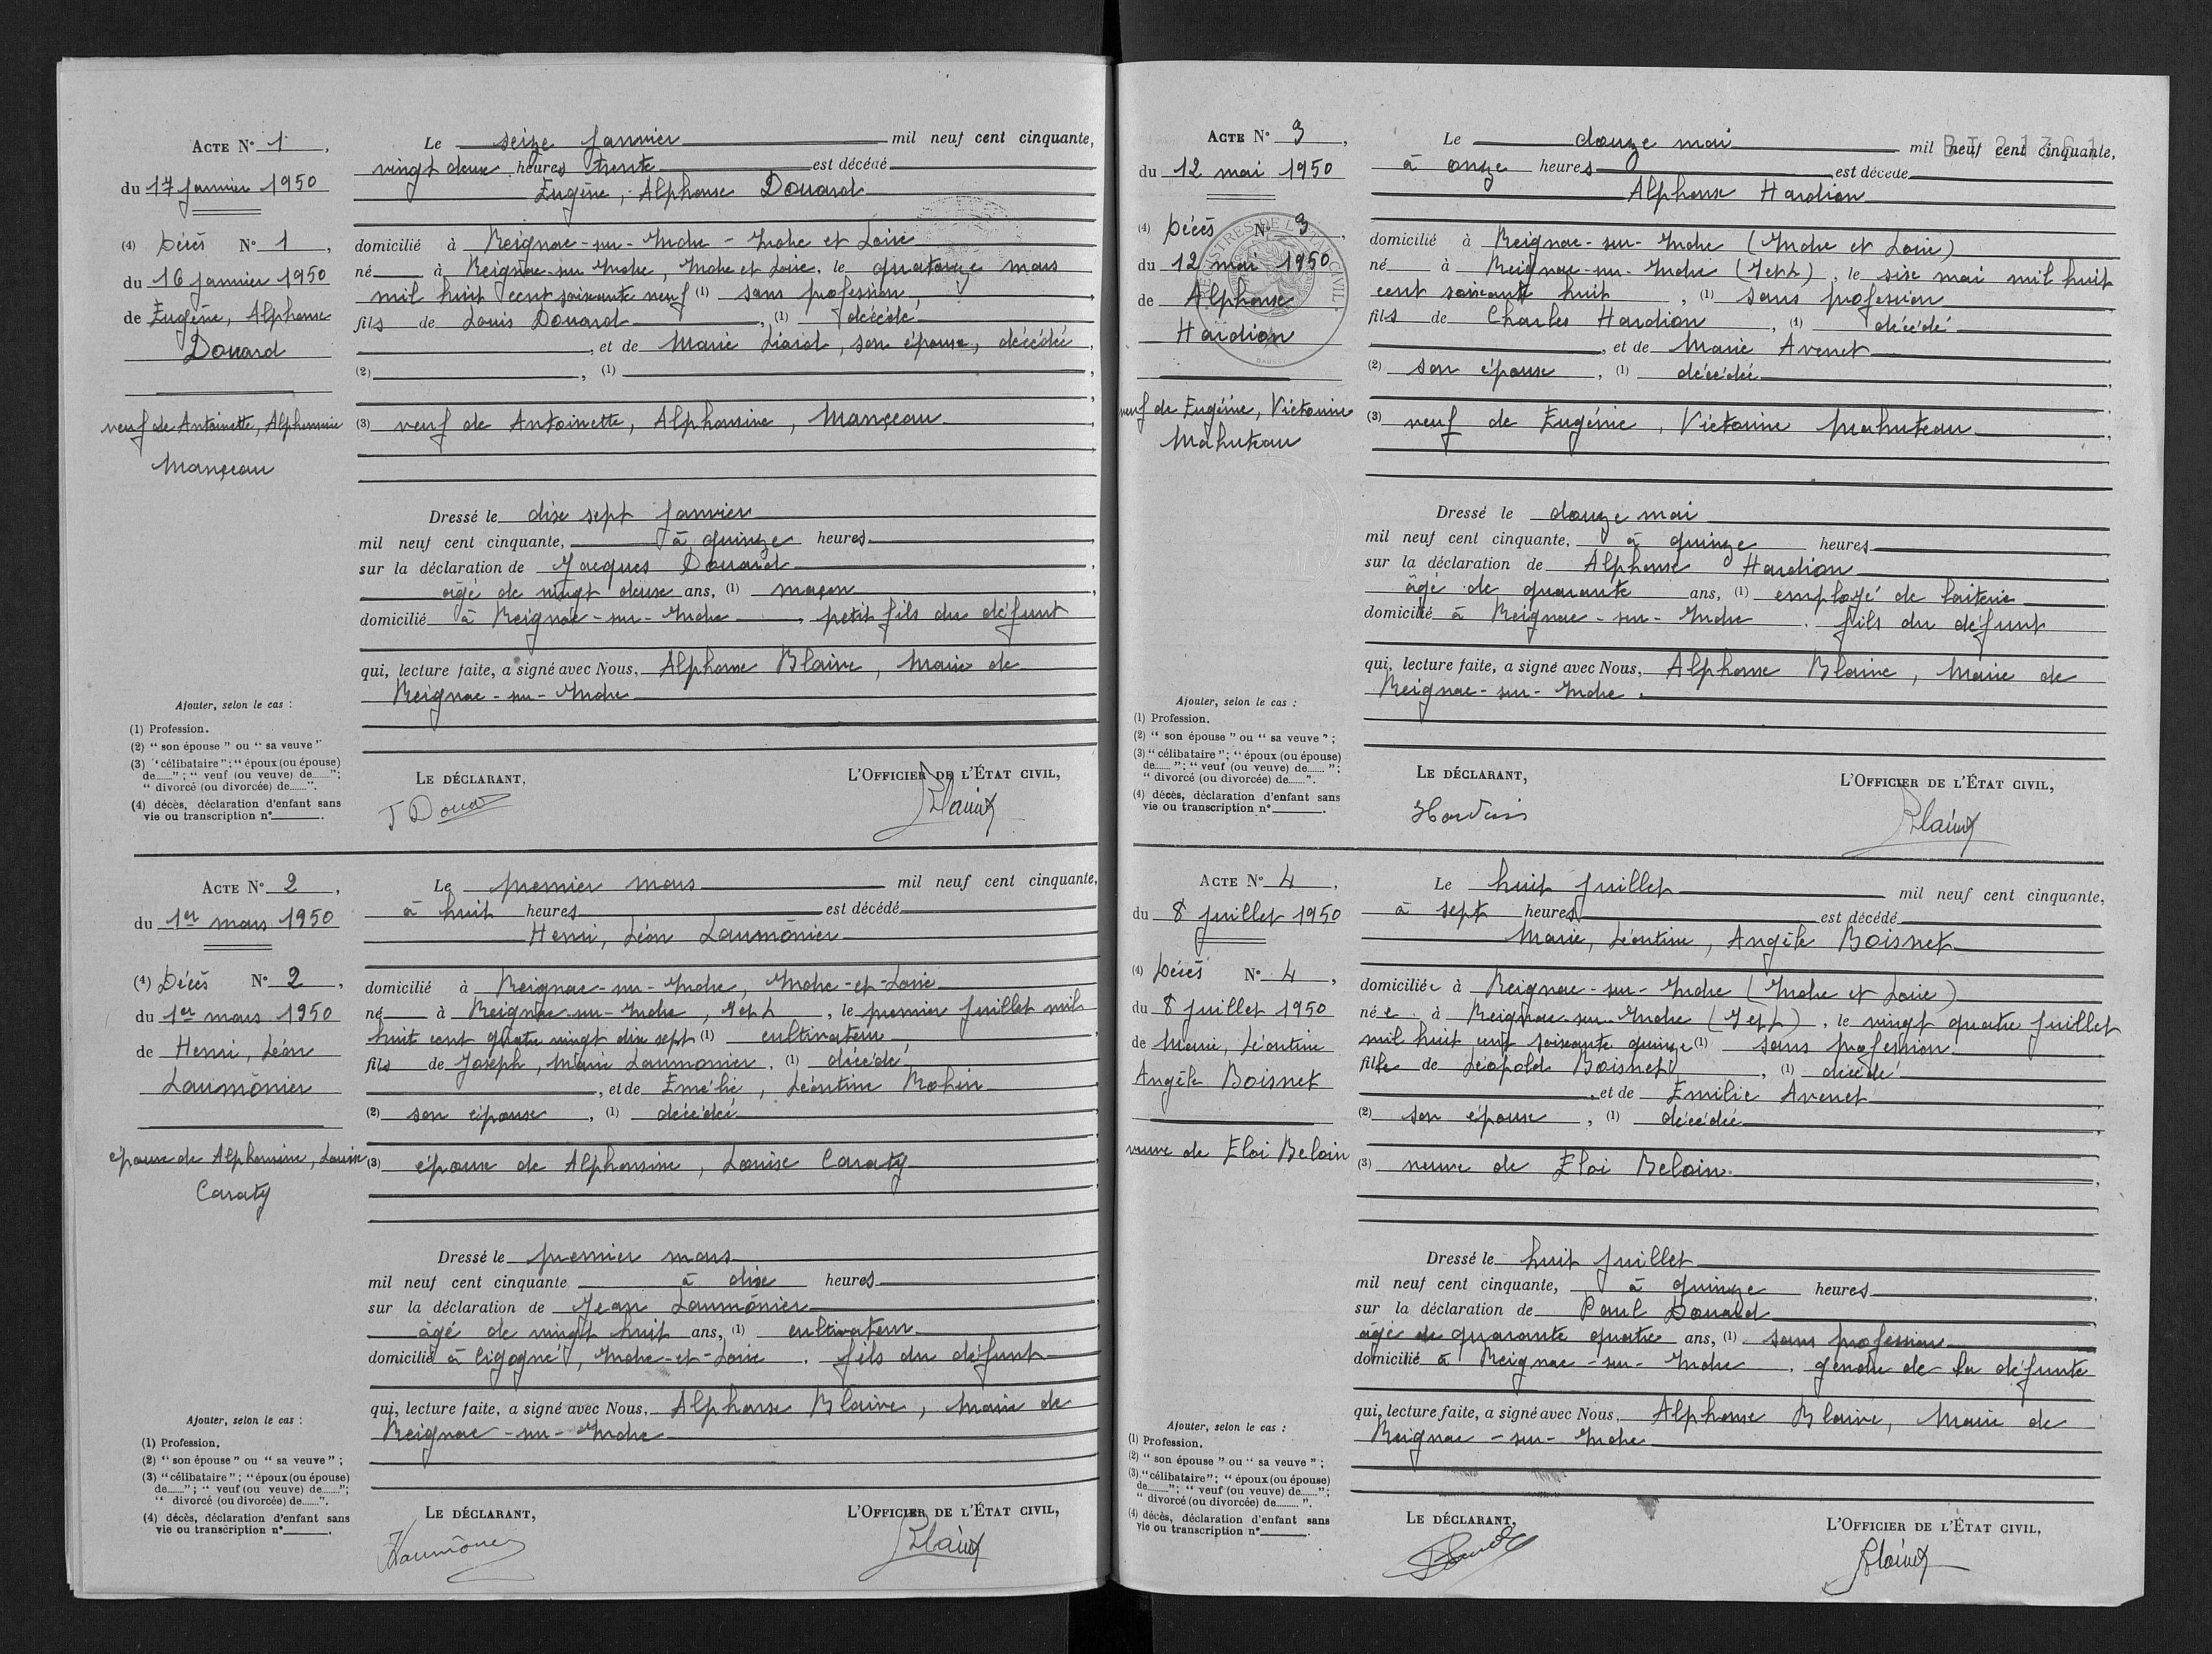 ACTE N° 1,
du 17 janvier 1950
(4) Décès N° 1,
du 16 janvier 1950
de Eugène, Alphonse
Douard
veuf de Antoinette, Alphonsine
Mançeau
Le seize janvier mil neuf cent cinquante,
vingt deux heures trente est décédé
Eugène, Alphonse Douard
domicilié à Reignac-sur-Indre - Indre et Loire
né à Reignac-sur-Indre, Indre et Loire, le quatorze mars
mil huit cent soixante neuf (1) sans profession,
fils de Louis Douard, (1) décédé
, et de Marie Liard, son épouse, décédée,
(2) , (1) ,
(3) veuf de Antoinette, Alphonsine, Mançeau
Dressé le dix sept janvier
mil neuf cent cinquante, à quinze heures
sur la déclaration de Jacques Douard,
âgé de vingt deux ans, (1) maçon,
domicilié à Reignac-sur-Indre, petit fils du défunt
qui, lecture faite, a signé avec Nous, Alphonse Blaive, Maire de
Reignac-sur-Indre
Ajouter, selon le cas :
(1) Profession.
(2) " son épouse " ou " sa veuve "
(3) " célibataire " ; " époux (ou épouse)
de......" ; " veuf (ou veuve) de......" ;
" divorcé (ou divorcée) de......".
(4) décès, déclaration d'enfant sans
vie ou transcription n° .
LE DÉCLARANT,
L'OFFICIER DE L'ÉTAT CIVIL,
J Douard
Blaive
ACTE N° 2,
du 1er mars 1950
(4) Décès N° 2,
du 1er mars 1950
de Henri, Léon
Laumônier
époux de Alphonsine, Louise
Caraty
Le premier mars mil neuf cent cinquante,
à huit heures est décédé
Henri, Léon Laumônier
domicilié à Reignac-sur-Indre, Indre-et-Loire
né à Reignac-sur-Indre, I et L, le premier juillet mil
huit cent quatre vingt dix sept (1) cultivateur,
fils de Joseph, Marie Laumonier, (1) décédé,
, et de Emélie, Léontine Mohin
(2) son épouse, (1) décédée
(3) époux de Alphonsine, Louise Caraty
Dressé le premier mars
mil neuf cent cinquante à dix heures
sur la déclaration de Jean Laumônier
âgé de vingt huit ans, (1) cultivateur
domicilié à Cigogné, Indre-et-Loire. fils du défunt
qui, lecture faite, a signé avec Nous, Alphonse Blaive, Maire de
Reignac-sur-Indre
Ajouter, selon le cas :
(1) Profession.
(2) " son épouse " ou " sa veuve " ;
(3) " célibataire " ; " époux (ou épouse)
de......" ; " veuf (ou veuve) de......" ;
" divorcé (ou divorcée) de......".
(4) décès, déclaration d'enfant sans
vie ou transcription n° .
LE DÉCLARANT,
L'OFFICIER DE L'ÉTAT CIVIL,
Laumônier
Blaive
ACTE N° 3,
du 12 mai 1950
(4) Décès N° 3,
du 12 mai 1950
de Alphonse
Hardion
veuf de Eugénie, Victorine
Mahuteau
Le douze mai mil neuf cent cinquante,
à onze heures est décédé
Alphonse Hardion
domicilié à Reignac-sur-Indre (Indre et Loire)
né à Reignac-sur-Indre (I et L), le six mai mil huit
cent soixante huit, (1) sans profession
fils de Charles Hardion, (1) décédé
, et de Marie Avenet
(2) son épouse, (1) décédée,
(3) veuf de Eugénie, Victorine Mahuteau
Dressé le douze mai
mil neuf cent cinquante, à quinze heures
sur la déclaration de Alphonse Hardion
âgé de quarante ans, (1) employé de laiterie
domicilié à Reignac-sur-Indre. fils du défunt
qui, lecture faite, a signé avec Nous, Alphonse Blaive, Maire de
Reignac-sur-Indre.
Ajouter, selon le cas :
(1) Profession.
(2) " son épouse " ou " sa veuve " ;
(3) " célibataire " ; " époux (ou épouse)
de......" : " veuf (ou veuve) de......" ;
" divorcé (ou divorcée) de......".
(4) décès, déclaration d'enfant sans
vie ou transcription n° .
LE DÉCLARANT,
L'OFFICIER DE L'ÉTAT CIVIL,
Hardion
Blaive
ACTE N° 4,
du 8 juillet 1950
(4) Décès N° 4,
du 8 juillet 1950
de Marie, Léontine
Angèle Boisnet
veuve de Eloi Beloin
Le huit juillet mil neuf cent cinquante,
à sept heures est décédé
Marie, Léontine, Angèle Boisnet
domiciliée à Reignac-sur-Indre (Indre et Loire)
née à Reignac-sur-Indre (I et L), le vingt quatre juillet
mil huit cent soixante quinze (1) sans profession
fille de Léopold Boisnet, (1) décédé
, et de Emilie Avenet
(2) son épouse, (1) décédée
(3) veuve de Eloi Beloin.
Dressé le huit juillet
mil neuf cent cinquante, à quinze heures
sur la déclaration de Paul Douard
âgé de quarante quatre ans, (1) sans profession
domicilié à Reignac-sur-Indre. gendre de la défunte
qui, lecture faite, a signé avec Nous, Alphonse Blaive, Maire de
Reignac-sur-Indre
Ajouter, selon le cas :
(1) Profession.
(2) " son épouse " ou " sa veuve " ;
(3) " célibataire " ; " époux (ou épouse)
de......" ; " veuf (ou veuve) de......" ;
" divorcé (ou divorcée) de...... ".
(4) décès, déclaration d'enfant sans
vie ou transcription n° .
LE DÉCLARANT,
L'OFFICIER DE L'ÉTAT CIVIL,
Blaive